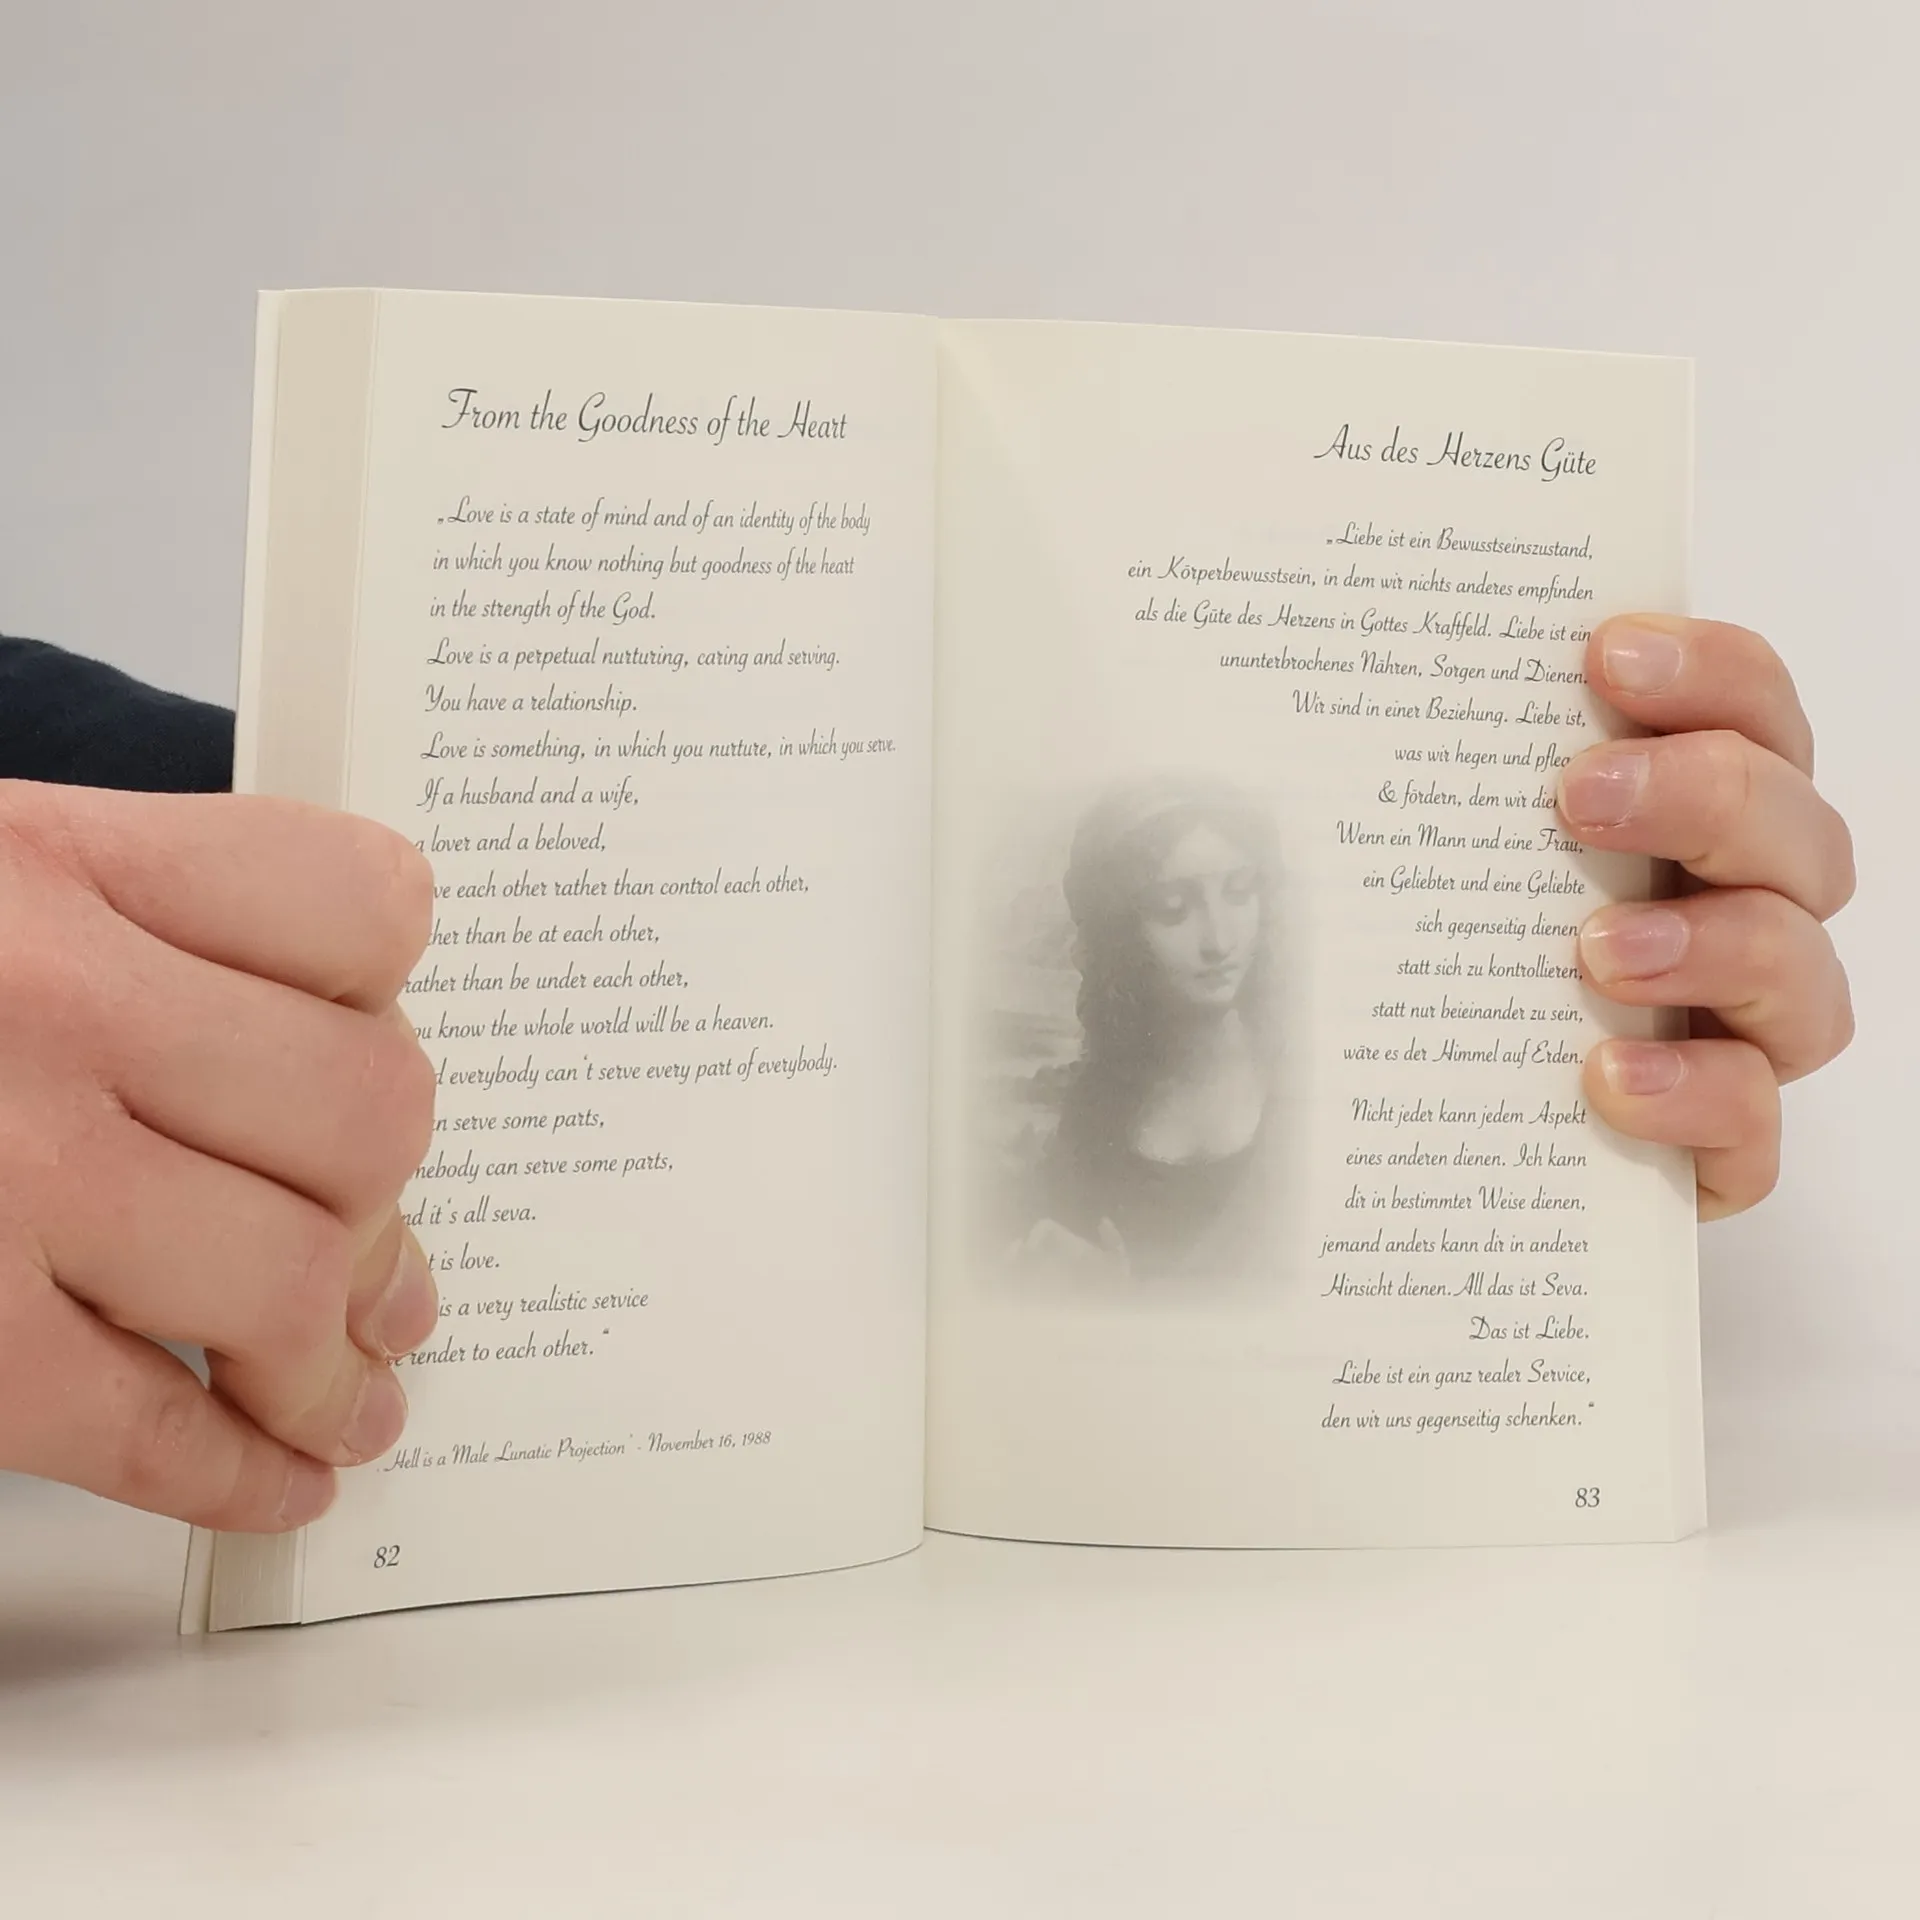 From the Goodness of the Heart
„Love is a state of mind and of an identity of the body
in which you know nothing but goodness of the heart
in the strength of the God.
Love is a perpetual nurturing, caring and serving.
You have a relationship.
Love is something, in which you nurture, in which you serve.
If a husband and a wife,
a lover and a beloved,
each other rather than control each other,
than be at each other,
rather than be under each other,
know the whole world will be a heaven.
everybody can't serve every part of everybody.
serve some parts,
can serve some parts,
it's all seva.
is love.
is a very realistic service
render to each other.“
Hell is a Male Lunatic Projection' - November 16, 1988
82
Aus des Herzens Güte
„Liebe ist ein Bewusstseinszustand,
ein Körperbewusstsein, in dem wir nichts anderes empfinden
als die Güte des Herzens in Gottes Kraftfeld. Liebe ist ein
ununterbrochenes Nähren, Sorgen und Dienen.
Wir sind in einer Beziehung. Liebe ist,
was wir hegen und
& fördern, dem wir
Wenn ein Mann und eine Frau,
ein Geliebter und eine Geliebte
sich gegenseitig dienen
statt sich zu kontrollieren,
statt nur beieinander zu sein,
wäre es der Himmel auf Erden.
Nicht jeder kann jedem Aspekt
eines anderen dienen. Ich kann
dir in bestimmter Weise dienen,
jemand anders kann dir in anderer
Hinsicht dienen. All das ist Seva.
Das ist Liebe.
Liebe ist ein ganz realer Service,
den wir uns gegenseitig schenken.“
83